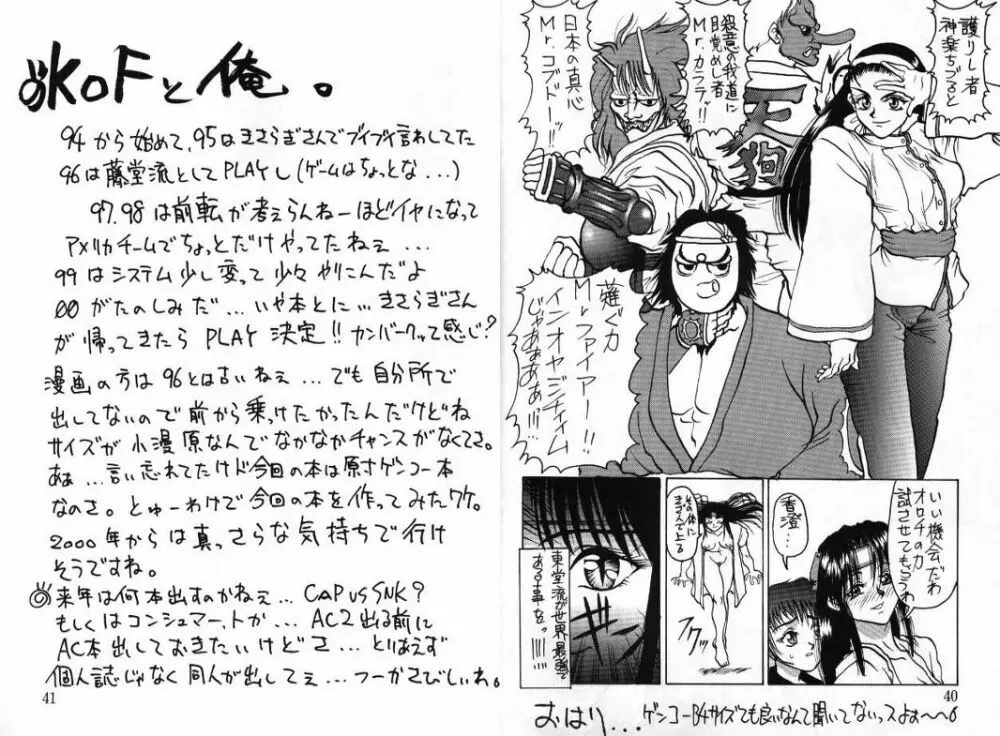 護りし者
神楽ちづると
殺意の我道に
目覚めし者
Mr.カラテッ!!
日本の真心
Mr.コブドーッ!!
天狗
薙ぐ力
Mrファイアー!!
インオヤジティイム
じゃあぁあぁぁ!!!
いい機会だわ
オロチの力
試させてもらうわ
香澄…
フワッ
東堂流が世界最強で
ある事を。!!
40
おはり…
ゲンコーB4サイズでも良いなんて聞いてないっスよぉ〜〜
KOFと俺。
94から始めて、95はきさらぎさんでブイブイ言わしてた
96は藤堂流としてPLAYし(ゲームはちょっとな...)
97.98は前転が考えらんねーほどイヤになって
アメリカチームでちょっとだけやってたねぇ...
99はシステム少し変って少々やりこんだよ
00がたのしみだ...いや本とに...きさらぎさん
が帰ってきたらPLAY決定!!カンバークって感じ?
漫画の方は96とは古いねぇ...でも自分所で
出してないので前から乗っけたかったんだけどね
サイズが小漫原なんでなかなかチャンスがなくてさ。
あぁ...言い忘れてたけど今回の本は原寸ゲンコー本
なのさ。とゅーわけで今回の本を作ってみたワケ。
2000年からは真っさらな気持ちで行け
そうですね。
◎来年は何本出すのかねぇ...CAP vs SNK?
もしくはコンシュマー、トが...AC2出る前に
AC本出しておきたいけどさ...とりあえず
個人誌じゃなく同人が出してぇ...フーかさびしいね。
41